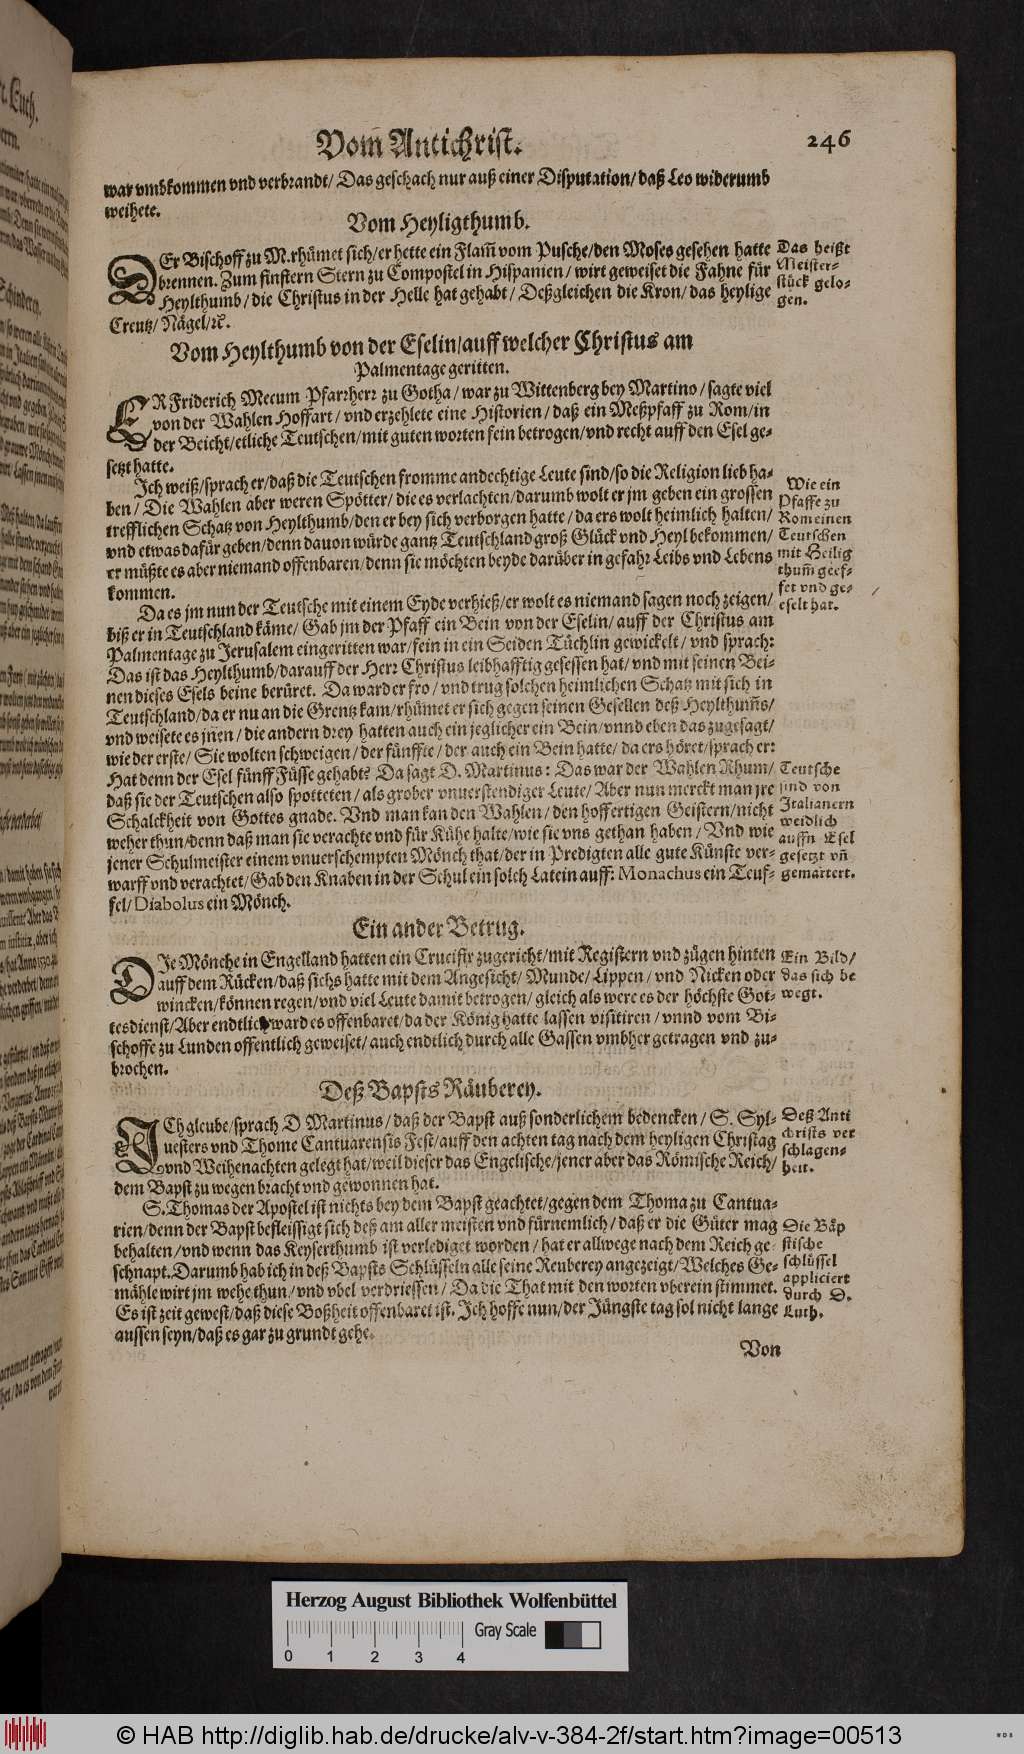 Vom̃ Antichrist.
246
war vmbkommen vnd verbrandt/ Das geschach nur auß einer Disputation/ daß Leo widerumb
weihete.
Vom Heyligthumb.
DEr Bischoff zu M. rhümet sich/ er hette ein Flam̃ vom Pusche/ den Moses gesehen hatte
brennen. Zum finstern Stern zu Compostel in Hispanien/ wirt geweiset die Fahne für
Heylthumb/ die Christus in der Helle hat gehabt/ Deßgleichen die Kron/ das heylige
Creutz/ Nägel/ ꝛc.
Das heißt
Meister-
stück gelo-
gen.
Vom Heylthumb von der Eselin/ auff welcher Christus am
Palmentage geritten.
ER Friderich Mecum Pfarrherr zu Gotha/ war zu Wittenberg bey Martino/ sagte viel
von der Wahlen Hoffart/ vnd erzehlete eine Historien/ daß ein Meßpfaff zu Rom/ in
der Beicht/ etliche Teutschen/ mit guten worten fein betrogen/ vnd recht auff den Esel ge-
setzt hatte.
Ich weiß/ sprach er/ daß die Teutschen fromme andechtige Leute sind/ so die Religion lieb ha-
ben/ Die Wahlen aber weren Spötter/ die es verlachten/ darumb wolt er jm geben ein grossen
trefflichen Schatz von Heylthumb/ den er bey sich verborgen hatte/ da ers wolt heimlich halten/
vnd etwas dafür geben/ denn dauon würde gantz Teutschland groß Glück vnd Heyl bekommen/
er müßte es aber niemand offenbaren/ denn sie möchten beyde darüber in gefahr Leibs vnd Lebens
kommen.
Wie ein
Pfaffe zu
Rom einen
Teutschen
mit Heilig
thum̃ geef-
fet vnd ge-
eselt hat.
Da es jm nun der Teutsche mit einem Eyde verhieß/ er wolt es niemand sagen noch zeigen/
biß er in Teutschland käme/ Gab jm der Pfaff ein Bein von der Eselin/ auff der Christus am
Palmentage zu Jerusalem eingeritten war/ fein in ein Seiden Tüchlin gewickelt/ vnd sprach:
Das ist das Heylthumb/ darauff der Herr Christus leibhafftig gesessen hat/ vnd mit seinen Bei-
nen dieses Esels beine berüret. Da ward er fro/ vnd trug solchen heimlichen Schatz mit sich in
Teutschland/ da er nu an die Grentz kam/ rhümet er sich gegen seinen Gesellen deß Heylthum̃s/
vnd weisete es jnen/ die andern drey hatten auch ein jeglicher ein Bein/ vnnd eben das zugesagt/
wie der erste/ Sie wolten schweigen/ der fünffte/ der auch ein Bein hatte/ da ers höret/ sprach er:
Hat denn der Esel fünff Füsse gehabt? Da sagt D. Martinus: Das war der Wahlen Rhum/
daß sie der Teutschen also spotteten/ als grober vnuerstendiger Leute/ Aber nun merckt man jre
Schalckheit von Gottes gnade. Vnd man kan den Wahlen/ den hoffertigen Geistern/ nicht
weher thun/ denn daß man sie verachte vnd für Kühe halte/ wie sie vns gethan haben/ Vnd wie
jener Schulmeister einem vnuerschempten Mönch that/ der in Predigten alle gute Künste ver-
warff vnd verachtet/ Gab den Knaben in der Schul ein solch Latein auff: Monachus ein Teuf-
fel/ Diabolus ein Mönch.
Teutsche
sind von
Italianern
weidlich
auffn Esel
gesetzt vn̄
gemartert.
Ein ander Betrug.
DJe Mönche in Engelland hatten ein Crucifix zugericht/ mit Registern vnd zügen hinten
auff dem Rücken/ daß sichs hatte mit dem Angesicht/ Munde/ Lippen/ vnd Nicken oder
wincken/ können regen/ vnd viel Leute damit betrogen/ gleich als were es der höchste Got-
tesdienst/ Aber endtlich ward es offenbaret/ da der König hatte lassen visitiren/ vnnd vom Bi-
schoffe zu Lunden offentlich geweiset/ auch endtlich durch alle Gassen vmbher getragen vnd zu-
brochen.
Ein Bild/
das sich be
wegt.
Deß Bapsts Räuberey.
JCh gleube/ sprach D Martinus/ daß der Bapst auß sonderlichem bedencken/ S. Syl-
uesters vnd Thome Cantuarensis Fest/ auff den achten tag nach dem heyligen Christag
vnd Weihenachten gelegt hat/ weil dieser das Engelische/ jener aber das Römische Reich/
dem Bapst zu wegen bracht vnd gewonnen hat.
Deß Anti
christs ver
schlagen-
heit.
S. Thomas der Apostel ist nichts bey dem Bapst geachtet/ gegen dem Thoma zu Cantua-
rien/ denn der Bapst befleissigt sich deß am aller meisten vnd fürnemlich/ daß er die Güter mag
behalten/ vnd wenn das Keyserthumb ist verlediget worden/ hat er allwege nach dem Reich ge-
schnapt. Darumb hab ich in deß Bapsts Schlüsseln alle seine Reuberey angezeigt/ Welches Ge-
mähle wirt jm wehe thun/ vnd vbel verdriessen/ Da die That mit den worten vberein stimmet.
Es ist zeit gewest/ daß diese Boßheit offenbaret ist. Ich hoffe nun/ der Jüngste tag sol nicht lange
aussen seyn/ daß es gar zu grundt gehe.
Die Bäp
stische
schlüssel
appliciert
durch D.
Luth.
Von
Herzog August Bibliothek Wolfenbüttel
Gray Scale
0 1 2 3 4
© HAB http://diglib.hab.de/drucke/alv-v-384-2f/start.htm?image=00513